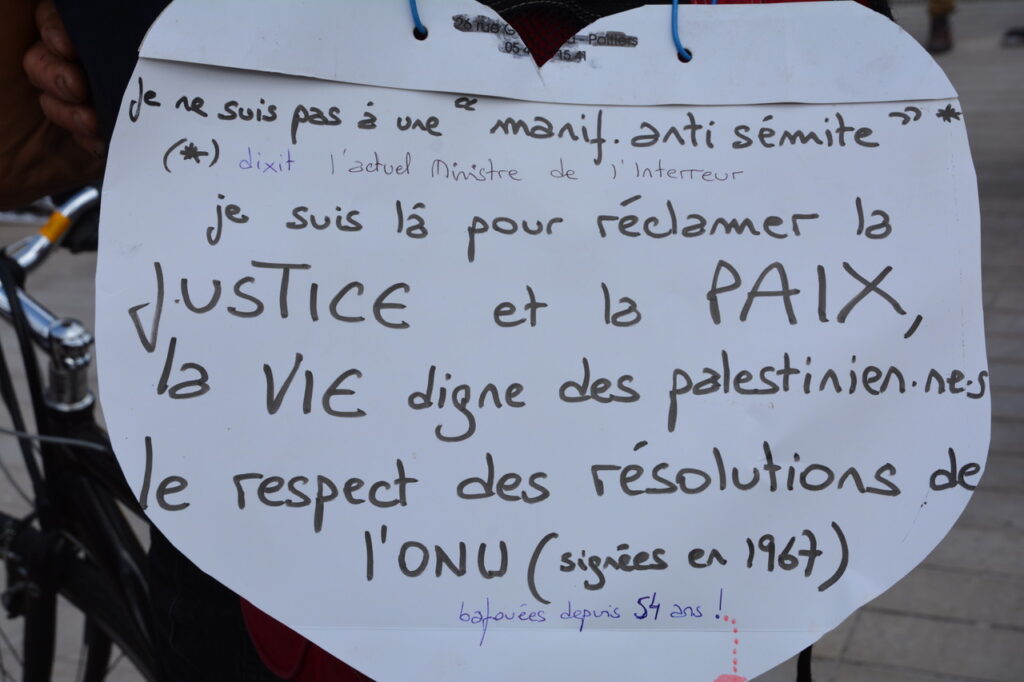 26 rue - Poitiers
05 15 41
Je ne suis pas à une “ manif. anti sémite ” *
(*) dixit l'actuel Ministre de l'Interreur
je suis là pour réclamer la
JUSTICE et la PAIX,
la VIE digne des palestinien.ne.s
le respect des résolutions de
l'ONU (signées en 1967)
bafouées depuis 54 ans !